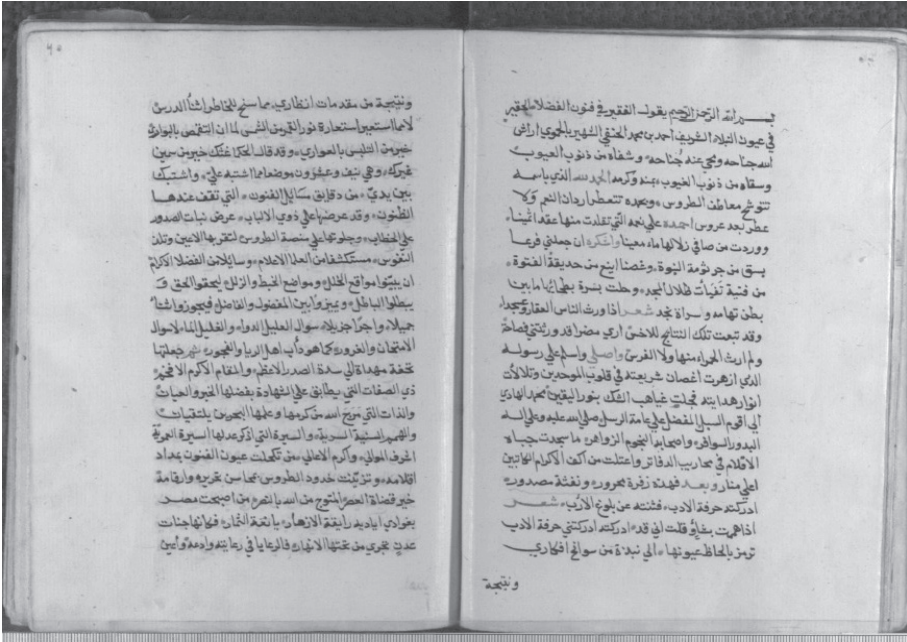 بسم الله الرحمن الرحيم يقول الفقير في فنون الفضلاء الحقير
في عيون النبلاء الشريف احمد بن محمد الحنفي الشهير بالحموي اراش
الله جناحه ومحى عنه جُناحه وشفاه من ذنوب العيوب
وسقاه من ذنوب الغيوب بمنه وكرمه الحمد لله الذي باسمه
تتوشح معاطن الطروس وبحمده تتعطر اردان النعم ولا
عطر بعد عروس احمده على نعمه التي تقلدت منها عقدا ثمينا
ووردت من صافي زلالها ماء معينا واشكره ان جعلني فرعا
بسق من جرثومة النبوة وغصنا اينع من حديقة الفتوة
من فتية تفيأت ظلال المجد وحلت بسرة بطحائها ما بين
بطن تهامه وسراة نجد شعر اذا ورث الناس العقار وعسجدا
وقد تبعت تلك النتائج للاخس اري مضرا قد ورثتني فصاحة
ولم ارث الحمراء منها ولا الفرس واصلي واسلم علي رسوله
الذي ازهرت اغصان شريعته في قلوب الموحدين وتلالأت
انوار هدايته فجلت غياهب الشك بنور اليقين محمد الهادي
الي اقوم السبل المفضل علي عامة الرسل صلي الله عليه وعلي اله
البدور السوافر واصحابه النجوم الزواهر ما سجدت جباه
الاقلام في محاريب الدفاتر واعتلت من اكف الاكرام الكاتبين
اعلي منابر وبعد فهذه زفرة محرور ونفثة مصدور
ادركته حرفة الادب فثنته عن بلوغ الارب شعر
اذا همت بغاؤ قلت اني قد ادركته ادركتني حرفة الادب
ترمز بالحاظ عيونها الي نبذة من سوانح افكاري
ونتيجة
٤٥
ونتيجة من مقدمات انظاري مما سنح للخاطر اثناء الدرس
لا مما استعير استعارة نور القمر من الشمس لما ان التقمص بالبواري
خير من التلبس بالعواري وقد قالت الحكما غثك خير من سمين
غيرك وهي نيف وعشرون موضعا مما اشتبه علي واشتبك
بين يدي من دقايق مسايل الفنون التي تقف عندها
الظنون وقد عرضتها علي ذوي الالباب عرض نبات الصدور
علي الخطاب وجلوتها علي منصة الطروس لتقر بها الاعين وتلذ
النفوس مستكشفا من العلما الاعلام وسايلا من الفضلا الاكرام
ان يبينوا مواقع الخلل ومواضع الخبط والزلل ليحقوا الحق و
يبطلوا الباطل ويميزوا بين المفضول والفاضل فيحوزوا ثنا
جميلا واجرا جزيلا سوال العليل الدواء والغليل الماء لا سوال
الامتحان والغرور كما هو دأب اهل الريا والفجور ثم جعلتها
تحفة مهداة الي سدة الصدر الاعظم والمقام الاكرم الافخم
ذي الصفات التي يطابق علي الشهادة بفضلها الخبر والعيان
والذات التي مرج الله من كرمها وعلمها البحرين يلتقيان
والهمم السنية السرية والسيرة التي اذكر عدلها السيرة العمرية
اشرف الموالي واكرم الاعالي من تكحلت عيون الفنون بمداد
اقلامه وتزينت خدود الطروس بمحاسن تحريره وارقامة
خير قضاة العصر المتوج من الله بالنصر من اصبحت مصر
بغوادي اياديه رايقة الازهار يانعة الثمار فكانها جنات
عدن تجري من تحتها الانهار فالرعايا في رعايته وادعة واعين